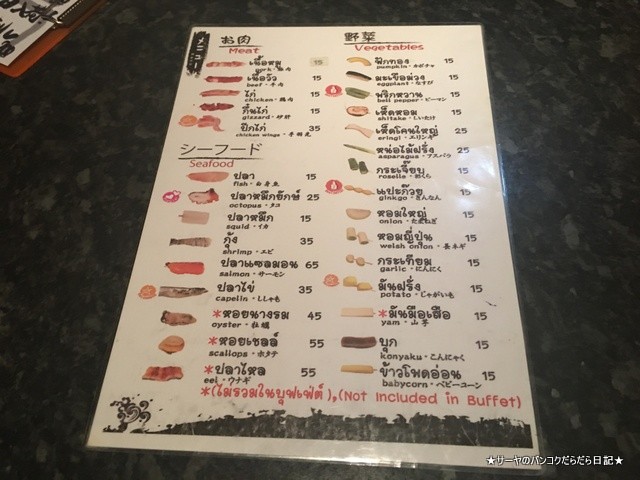 メニュー
お肉
Meat
เนื้อหมู 15
pork・豚肉
เนื้อวัว 15
beef・牛肉
ไก่ 15
chicken・鶏肉
กึ๋นไก่ 15
gizzard・砂肝
ปีกไก่ 35
chicken wings・手羽先
シーフード
Seafood
ปลา 15
fish・白身魚
ปลาหมึกยักษ์ 25
octopus・タコ
ปลาหมึก 15
squid・イカ
กุ้ง 35
shrimp・エビ
ปลาแซลมอน 65
salmon・サーモン
ปลาไข่ 35
capelin・ししゃも
*หอยนางรม 45
oyster・牡蠣
*หอยเชลล์ 55
scallops・ホタテ
*ปลาไหล 55
eel・ウナギ
野菜
Vegetables
ฟักทอง 15
pumpkin・カボチャ
มะเขือม่วง 15
eggplant・なすび
พริกหวาน 15
bell pepper・ピーマン
เห็ดหอม 15
shitake・しいたけ
เห็ดโคนใหญ่ 25
eringi・エリンギ
หน่อไม้ฝรั่ง 25
asparagus・アスパラ
กระเจี๊ยบ 15
roselle・おくら
แปะก๊วย 15
ginkgo・ぎんなん
หอมใหญ่ 15
onion・たまねぎ
หอมญี่ปุ่น 15
welsh onion・長ネギ
กระเทียม 15
garlic・にんにく
มันฝรั่ง 15
potato・じゃがいも
*มันมือเสือ 15
yam・山芋
บุก 15
konyaku・こんにゃく
ข้าวโพดอ่อน 15
babycorn・ベビーコーン
*(ไม่รวมในบุฟเฟ่ต์),(Not included in Buffet)
★サーヤのバンコクだらだら日記★